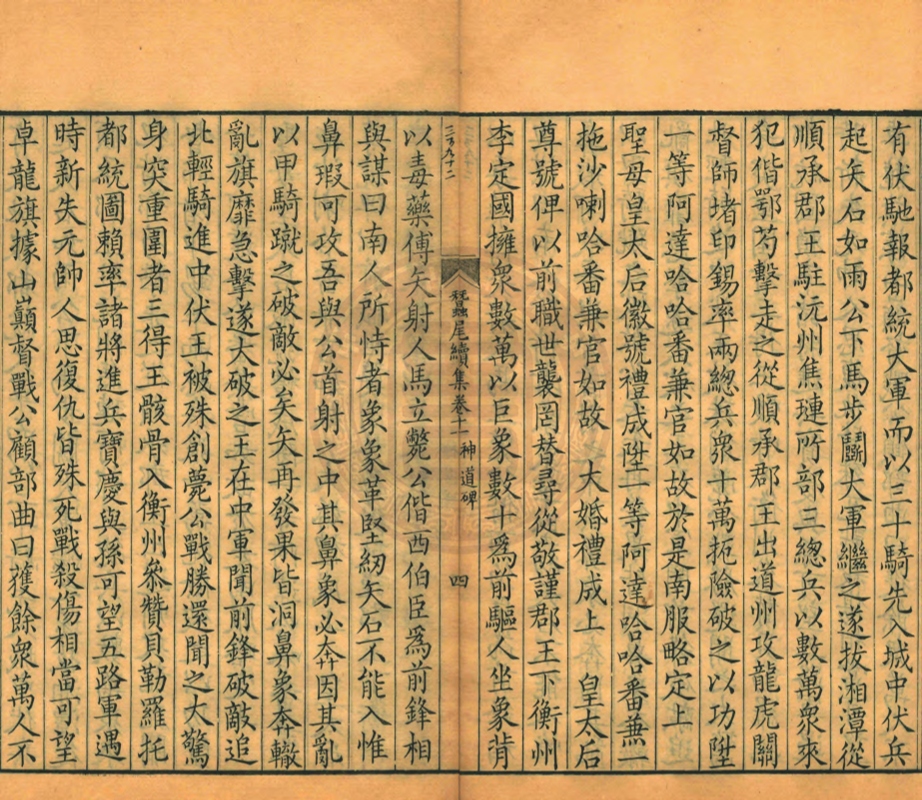 有伏馳報都統大軍而以三十騎先入城中伏兵
起矢石如雨公下馬步鬭大軍繼之遂拔湘潭從
順承郡王駐沅州焦璉所部三總兵以數萬衆來
犯偕鄂芍擊走之從順承郡王出道州攻龍虎關
督師堵印錫率兩總兵衆十萬扼險破之以功陞
一等阿達哈哈番兼官如故於是南服略定上
聖母皇太后徽號禮成陞一等阿達哈哈番兼一
拖沙喇哈番兼官如故 大婚禮成上 皇太后
尊號俾以前職世襲罔替尋從敬謹郡王下衡州
李定國擁衆數萬以巨象數十爲前驅人坐象背
二万九十二
蠶尾續集 卷十一 神道碑 四
以毒藥傅矢射人馬立斃公偕西伯臣爲前鋒相
與謀曰南人所恃者象象革堅紉矢石不能入惟
鼻瑕可攻吾與公首射之中其鼻象必奔因其亂
以甲騎蹴之破敵必矣矢再發果皆洞鼻象奔轍
亂旗靡急擊遂大破之王在中軍聞前鋒破敵追
北輕騎進中伏王被殊創薨公戰勝還聞之大驚
身突重圍者三得王骸骨入衡州叅贊貝勒羅托
都統圖賴率諸將進兵寶慶與孫可望五路軍遇
時新失元帥人思復仇皆殊死戰殺傷相當可望
卓龍旗據山巔督戰公顧部曲曰獲餘衆萬人不